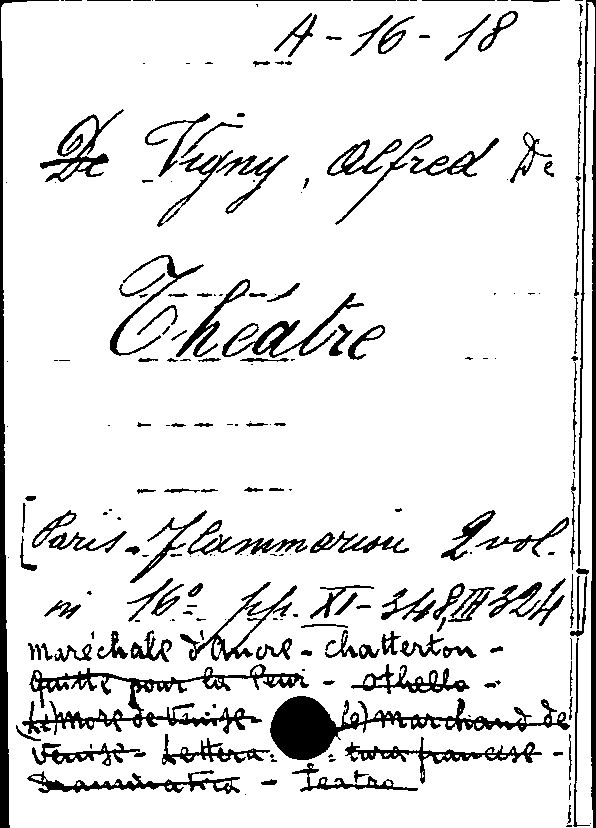 A-16-18
De Vigny, Alfred De
Théatre
[Paris - Flammarion 2 vol.
in 16º pp. XI-348, III 324
maréchale d'Ancre - Chatterton -
Quitte pour la Peur - Othello -
(Le) More de Venise - (Le) Marchand de
Venise - Lettera: tura francese -
Drammatica - Teatro